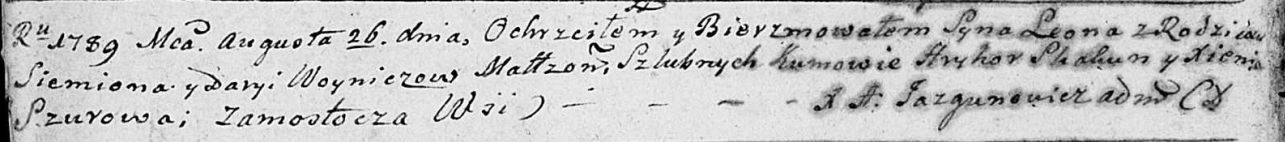 Ru 1789 Mca. Augusta 26. dnia, Ochrzciłem y Bierzmowałem Syna Leona z Rodzicow
Siemiona y Daryi Woyniczow Małżon; Szlubnych Kumowie Hryhor Skakun y Xienia
Szurowa; Zamostocza Wsi) — — — — X A: Jazgunowicz adm